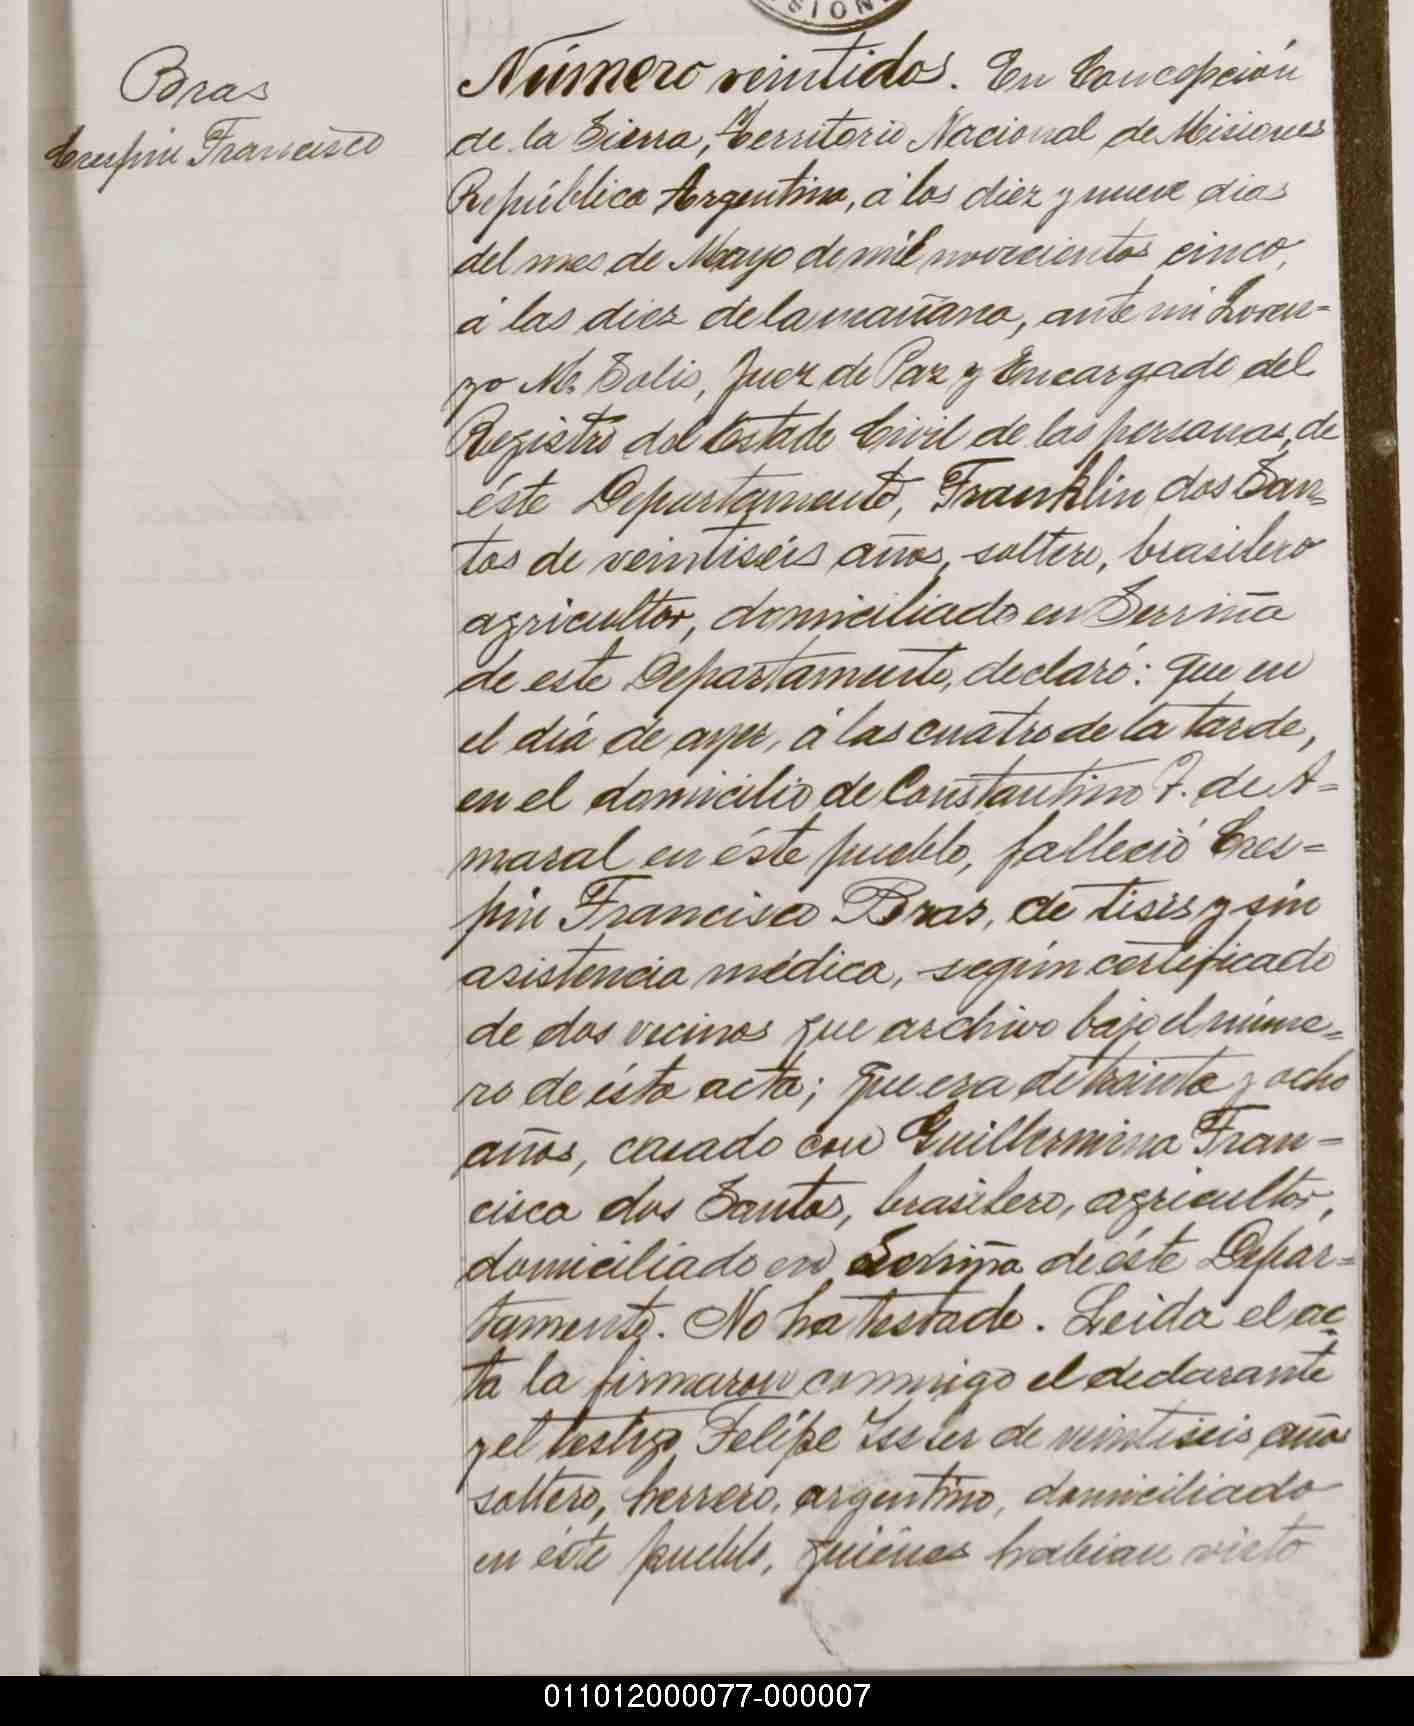 Bras
Crespin Francisco
SION
Número veintidos. En Concepción
de la Sierra, Territorio Nacional de Misiones
República Argentina, á los diez y nueve dias
del mes de Mayo de mil novecientos cinco,
á las diez de la mañana, ante mi Loren=
zo M. Solis, Juez de Paz y Encargado del
Registro del Estado Civil de las personas, de
éste Departamento, Franklin dos San=
tos de veintiseis años, soltero, brasilero
agricultor, domiciliado en Serriña
de este Departamento, declaró: que en
el diá de ayer, á las cuatro de la tarde,
en el domicilio de Constantino F. de A=
maral en éste pueblo, falleció Cres=
pin Francisco Bras, de tisis y sin
asistencia médica, según certificado
de dos vecinos que archivo bajo el núme=
ro de ésta acta; que era de treinta y ocho
años, casado con Guillermina Fran=
cisca dos Santos, brasilero, agricultor,
domiciliado en de éste Depar=
tamento. No ha testado. Leida el ac
ta la firmaron conmigo el declarante
y el testigo Felipe de veintiseis años
soltero, herrero, argentino, domiciliado
en éste pueblo, quiénes habian visto
011012000077-000007